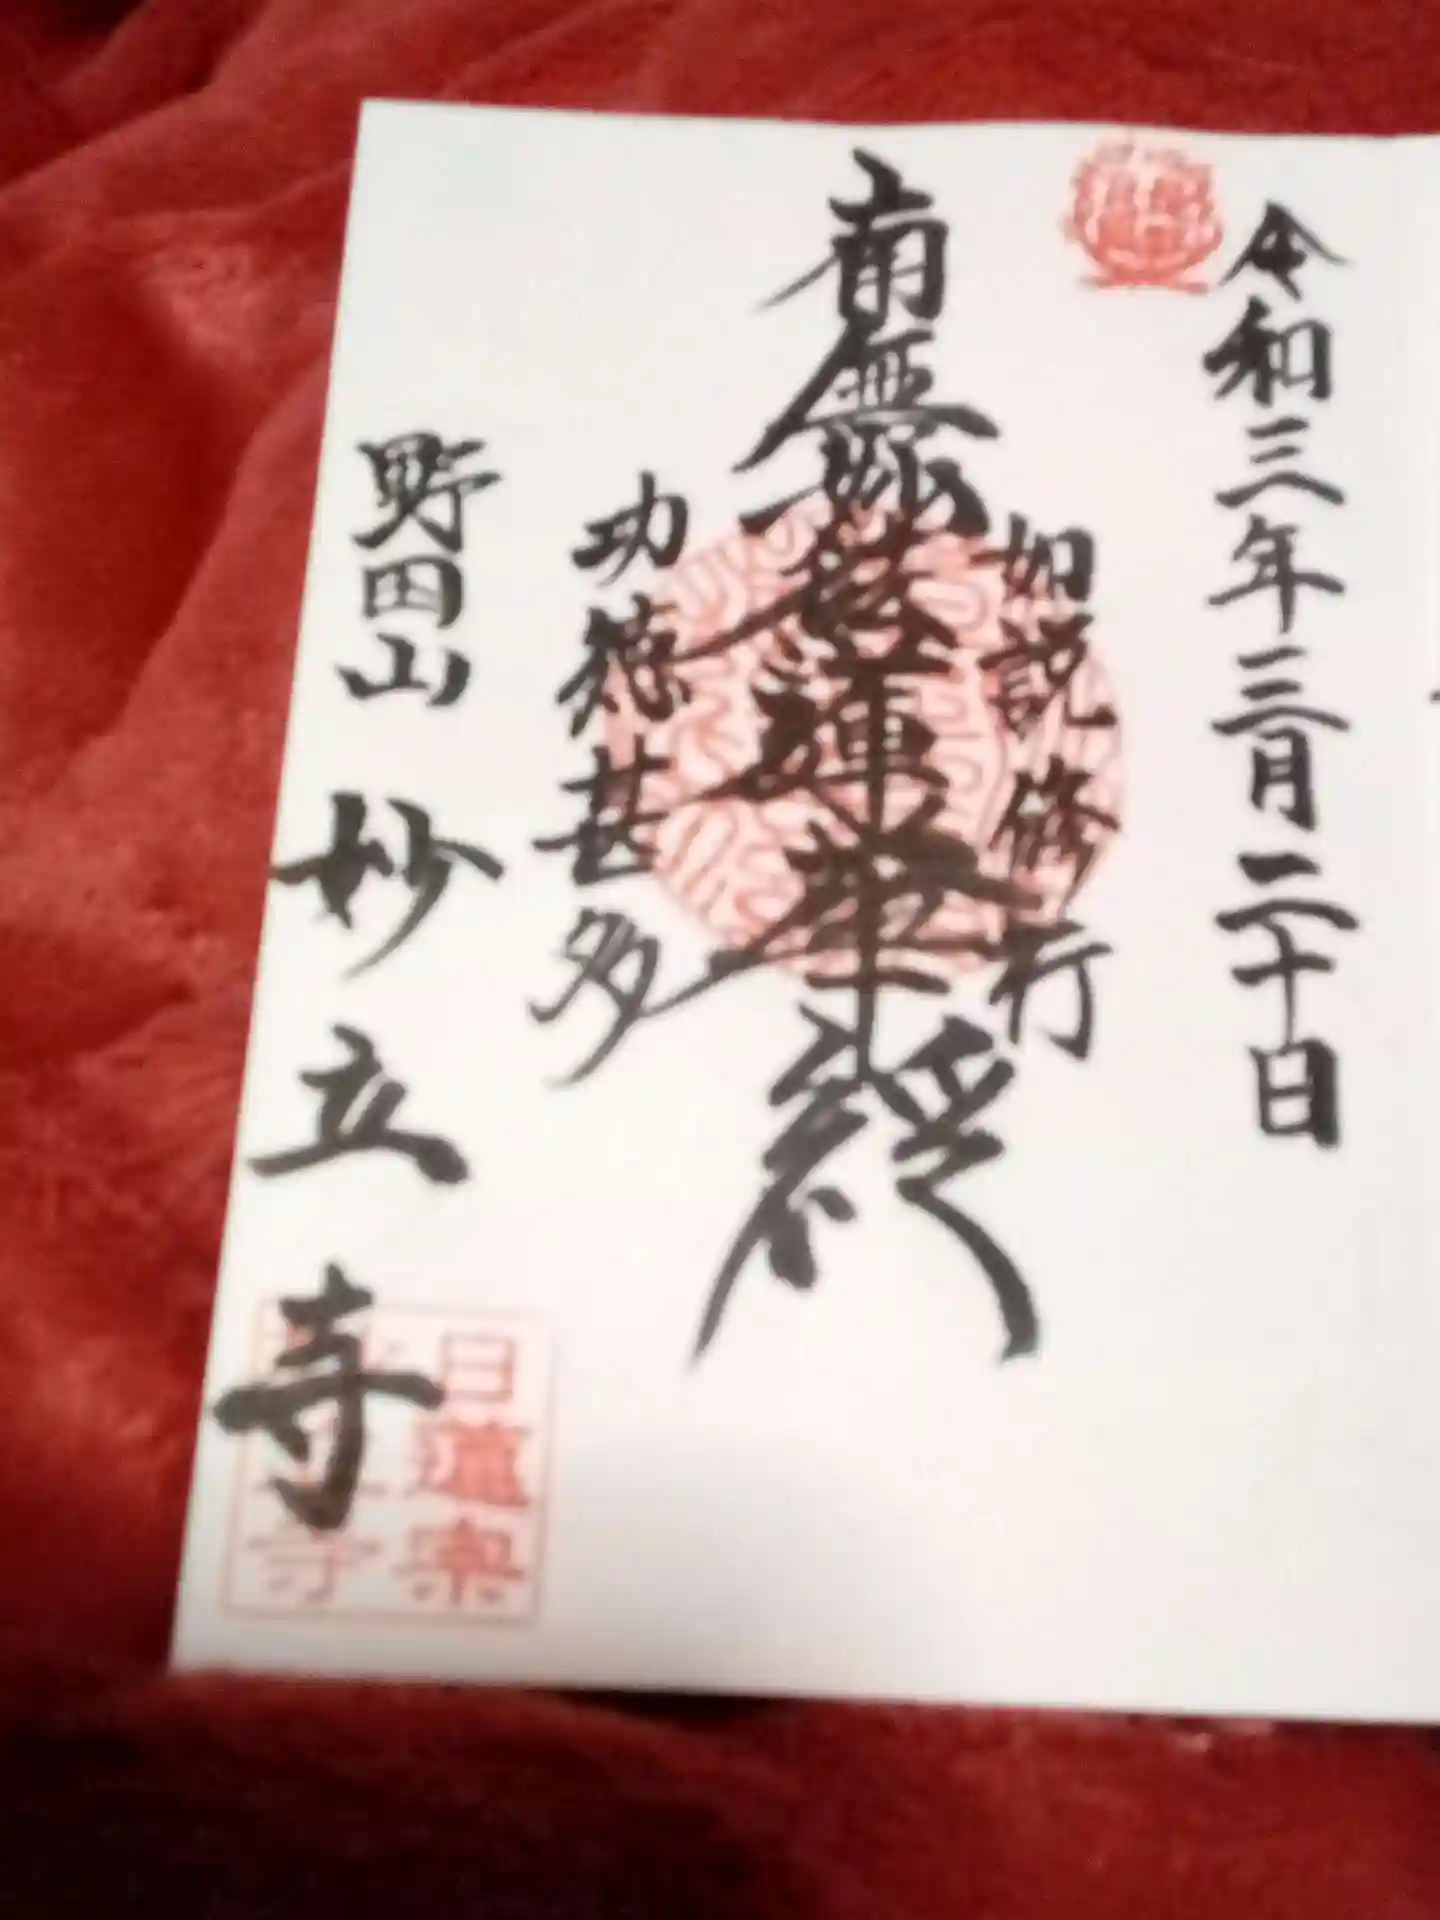 令和三年三月二十日
如説修行
南無妙法蓮華経
功徳甚多
野田山 妙立寺
日蓮宗
寺